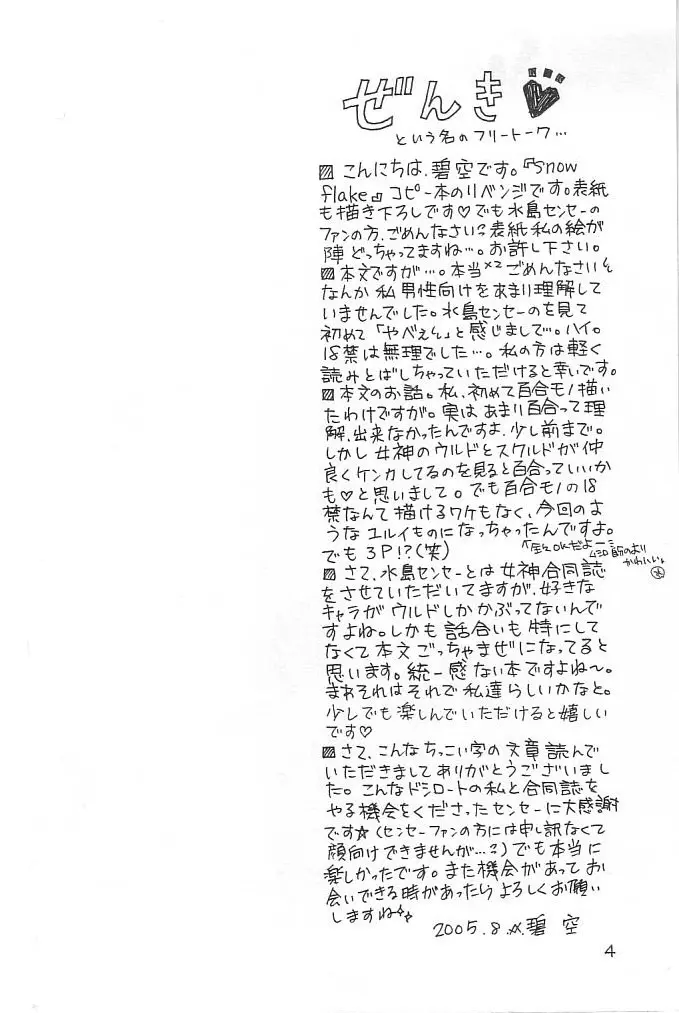 ぜんき
という名のフリートーク…
こんにちは、碧空です。『Snow
flake』コピー本のリベンジです。表紙
も描き下ろしです♡でも水島センセーの
ファンの方、ごめんなさい?表紙私の絵が
陣どっちゃってますね…。お許し下さい。
本文ですが…。本当×2ごめんなさい
なんか私男性向けをあまり理解して
いませんでした。水島センセーのを見て
初めて「やべぇ」と感じまして…。ハイ。
18禁は無理でした…。私の方は軽く
読みとばしちゃっていただけると幸いです。
本文のお話。私、初めて百合モノ描い
たわけですが。実はあまり百合って理
解、出来なかったんですよ、少し前まで。
しかし女神のウルドとスクルドが仲
良くケンカしてるのを見ると百合っていいか
も♡と思いまして。でも百合モノの18
禁なんて描けるワケもなく、今回のよ
うなユルイものになっちゃったんですよ。
でも3P!?(笑)
OKだよー
かわいい。
さて、水島センセーとは女神合同誌
をさせていただいてますが、好きな
キャラがウルドしかかぶってないんで
すよね。しかも話合いも特にして
なくて本文ごっちゃまぜになってると
思います。統一感ない本ですよね〜。
まぁそれはそれで私達らしいかなと。
少しでも楽しんでいただけると嬉しい
です♡
さて、こんなちっこい字の文章読んで
いただきましてありがとうございまし
た。こんなドシロートの私と合同誌を
やる機会をくださったセンセーに大感謝
です☆(センセーファンの方には申し訳なくて
顔向けできませんが…?)でも本当に
楽しかったです。また機会があってお
会いできる時があったらよろしくお願い
しますね
2005.8.碧空
4